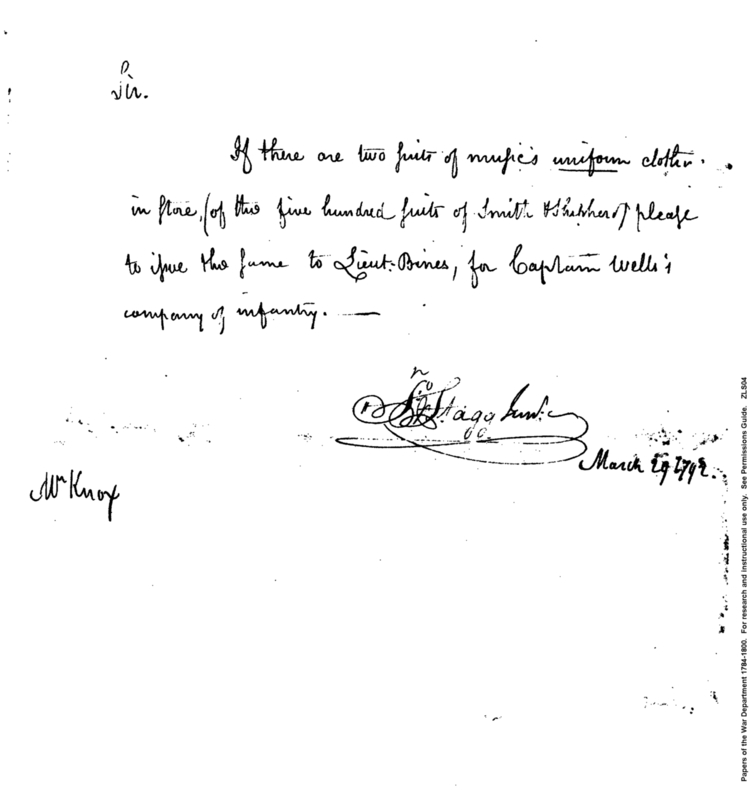 Sir.
If there are two suits of music's uniform clothes
in store, (of the five hundred suits of Smith & Shepherd) please
to issue the same to Lieut. Bines, for Captain Wells's
company of infantry. —
Stagg Junr.
March 29 1792.
Mr Knox
Papers of the War Department 1784-1800. For research and instructional use only. See Permissions Guide. ZLS04